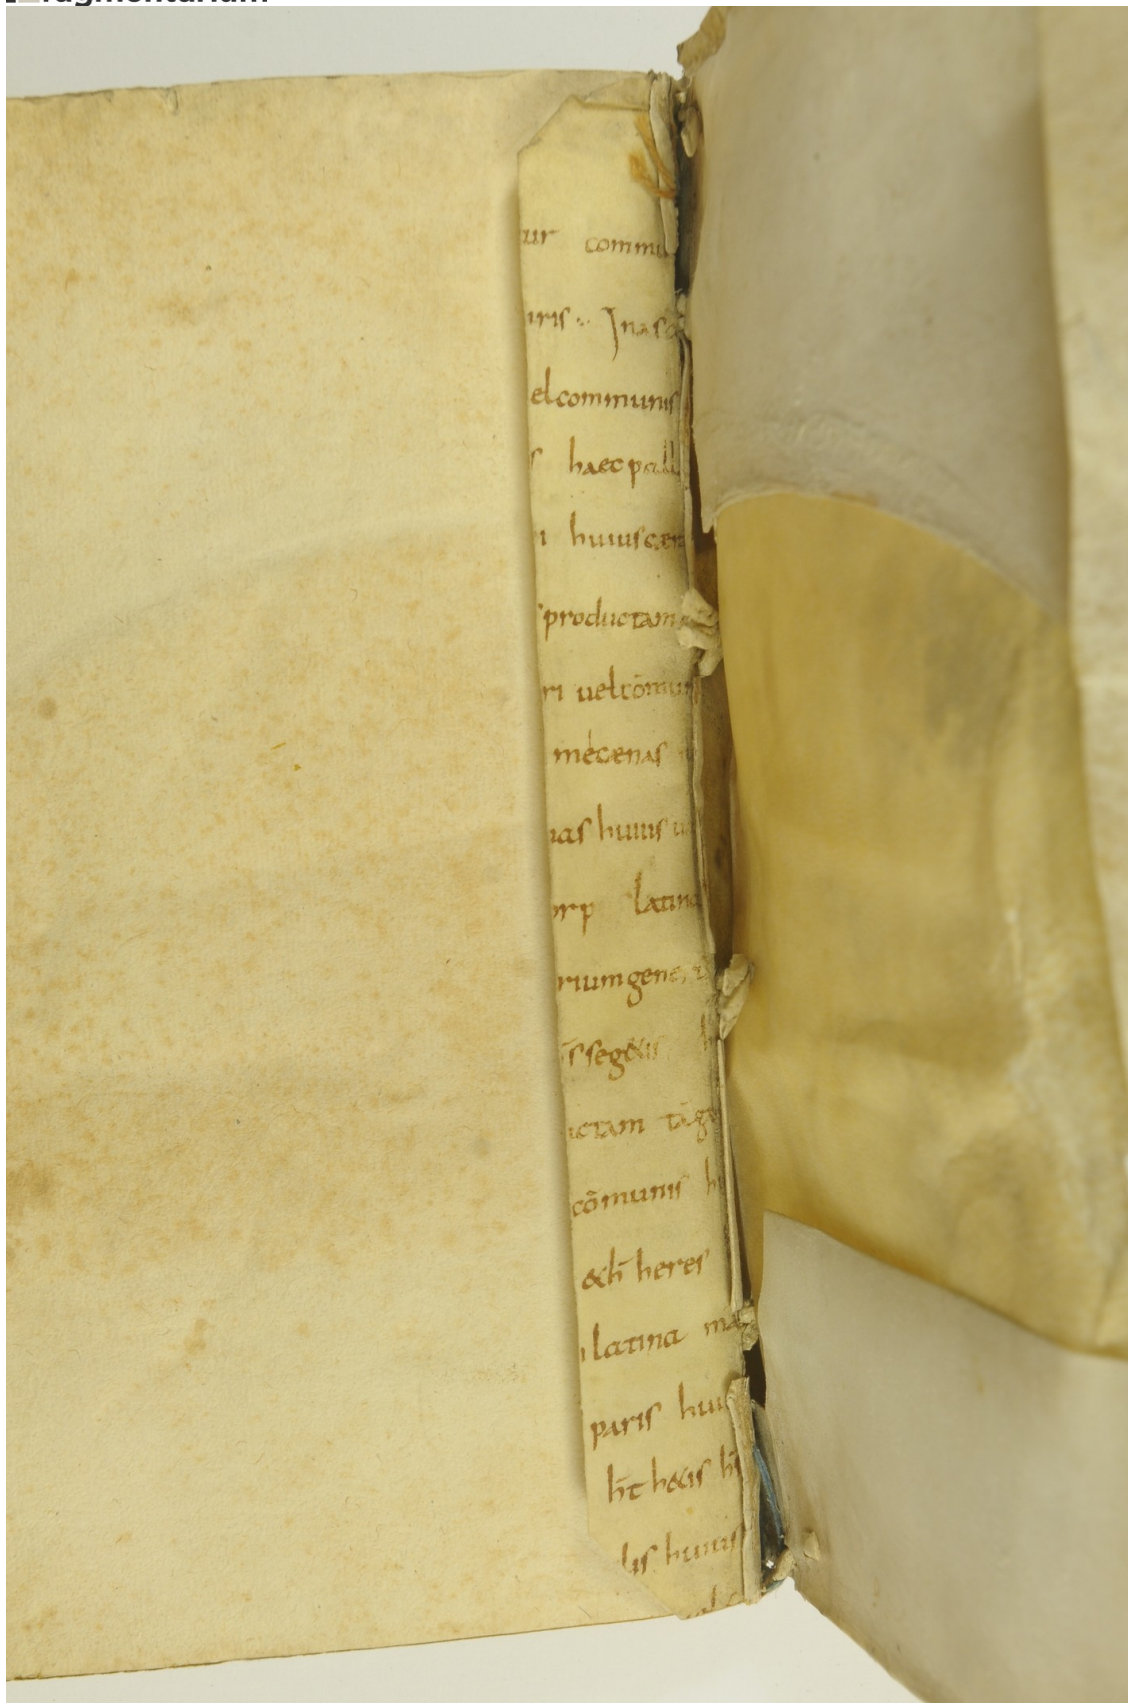 ur commu
iris Inas
elcommunis
s haec pall
i huiuscæ
productam
ri uelcōmu
mecænas
nas huius
orp latina
rium gene
s seg&is h
ctam tāg
cōmunis h
&h̄ heres
latina ma
paris huiu
h̄t h&is h̄
lis huius